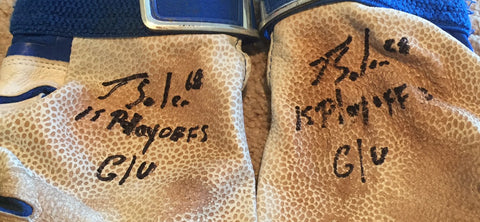 J Soler 68
15 PlAyoFFS
G/U
J Soler 68
15 PlAyoFFS
G/U